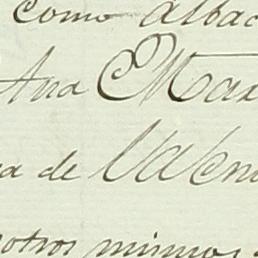 como albac
Ana Ma
a de Valen
otros mismos